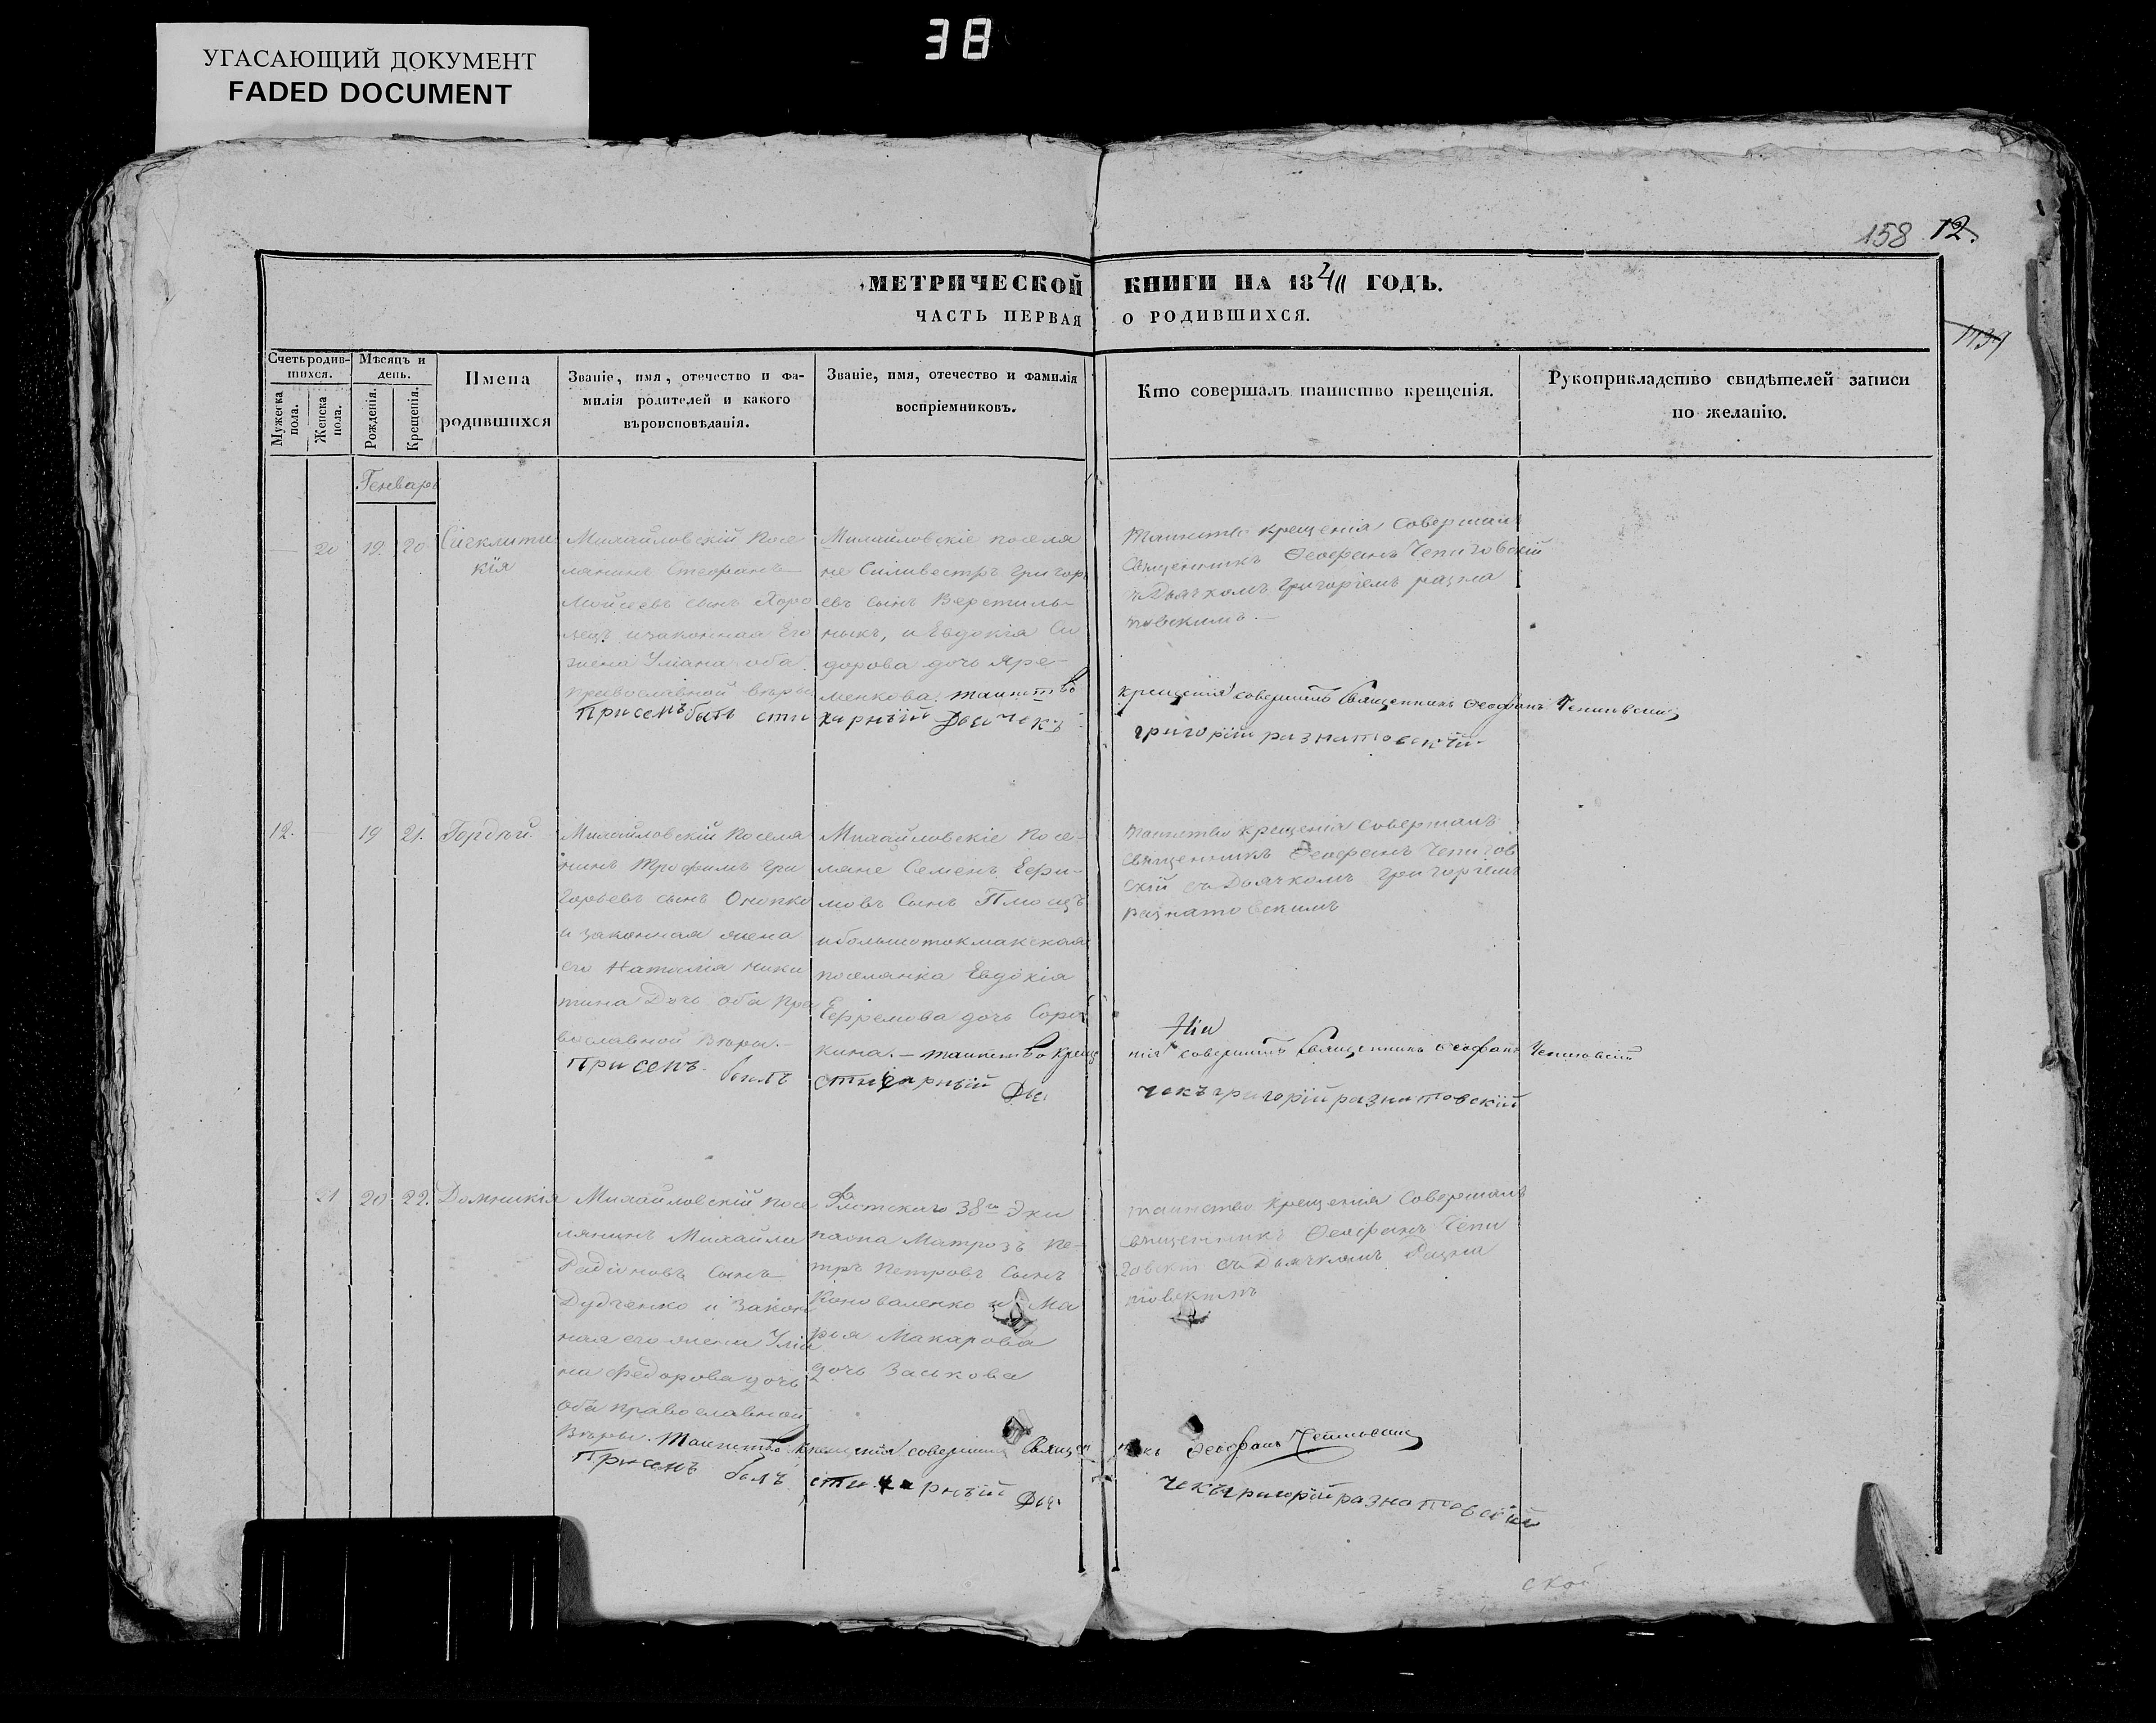 38
УГАСАЮЩИЙ ДОКУМЕНТ
FADED DOCUMENT
158 12.
МЕТРИЧЕСКОЙ КНИГИ НА 1840 ГОДЪ.
ЧАСТЬ ПЕРВАЯ О РОДИВШИХСЯ.
Счетъ родив-
шихся.
Мужеска
пола.
Женска
пола.
Мѣсяцъ и
день.
Рожденія.
Крещенія.
Имена
родившихся
Званіе, имя, отечество и фа-
милія родителей и какого
вѣроисповѣданія.
Званіе, имя, отечество и фамилія
воспріемниковъ.
Кто совершалъ таинство крещенія.
Рукоприкладство свидѣтелей записи
по желанію.
Генварь
20 19. 20
Сигклити
кія
Михайловскій посе
лянинъ Стефанъ
Мойсеевъ сынъ Хоро
и законная Его
жена Уліана оба
православной вѣры
Михайловскіе поселя
не Силивестръ Григорь
евъ сынъ Верстиль-
никъ, и Евдокія Си
дорова дочь Яре-
менкова. таинство
Таинство крещенія Совершалъ
Священникъ Ѳеофанъ Чепиговскій
съ Дьячкомъ Григоріемъ разна
товскимъ.
крещенія совершилъ Священникъ Ѳеофанъ Чепиговскій
Присемъ былъ сти харный Дьячокъ
григорій разнатовскій
12. 19 21. Гордѣй
Михайловскій Поселя
нинъ Трофимъ Гри
горьевъ сынъ Онопко
и законная жена
его Наталія Ники
тина Дочь оба пра
вославной Вѣры.-
Михайловскіе Посе-
ляне Семенъ Ефи-
мовъ Сынъ
и большотокмакская
поселянка Евдокія
Ефремова дочь Соро
кина. - таинство креще
таинство крещенія совершалъ
священникъ Ѳеофанъ Чепигов
скій съ Дьячкомъ Григоріемъ
разнатовскимъ
нія совершилъ Священникъ Ѳеофанъ Чепиговскій
Присемъ былъ стихарный Дья
чекъ григорій разнатовскій
21 20 22. Домникія
Михайловскій посе
лянинъ Михайла
Радіоновъ Сынъ
Дудченко и Закон
ная его жена Уліа
на Федорова дочь
оба православной
Вѣры. Таинство
Флотскаго 38го Эки
пажа Матрозъ Пе-
тръ Петровъ Сынъ
Коноваленко и Ма
рья Макарова
дочь Заськова
таинство крещенія Совершалъ
священникъ Ѳеофанъ Чепи
говскій съ Дьячкомъ Разна
товскимъ
крещенія совершилъ Священникъ Ѳеофанъ Чепиговскій
Присемъ былъ стихарный Дья
чекъ григорій разнатовскій
ской